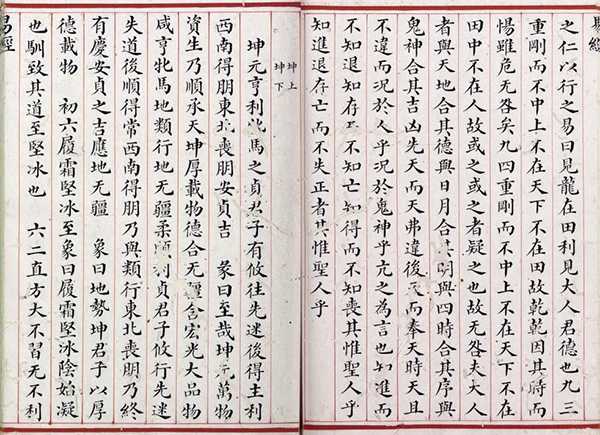 易經
之仁以行之易曰見龍在田利見大人君德也九三
重剛而不中上不在天下不在田故乾乾因其時而
惕雖危无咎矣九四重剛而不中上不在天下不在
田中不在人故或之或之者疑之也故无咎夫大人
者與天地合其德與日月合其明與四時合其序與
鬼神合其吉凶先天而天弗違後天而奉天時天且
不違而況於人乎況於鬼神乎亢之為言也知進而
不知退知存而不知亡知得而不知喪其惟聖人乎
知進退存亡而不失正者其惟聖人乎
坤上
坤下
坤元亨利牝馬之貞君子有攸往先迷後得主利
西南得朋東北喪朋安貞吉　彖曰至哉坤元萬物
資生乃順承天坤厚載物德合无疆含宏光大品物
咸亨牝馬地類行地无疆柔順利貞君子攸行先迷
失道後順得常西南得朋乃與類行東北喪朋乃終
有慶安貞之吉應地无疆　象曰地勢坤君子以厚
德載物　初六履霜堅冰至象曰履霜堅冰陰始凝
也馴致其道至堅冰也　六二直方大不習无不利
易經